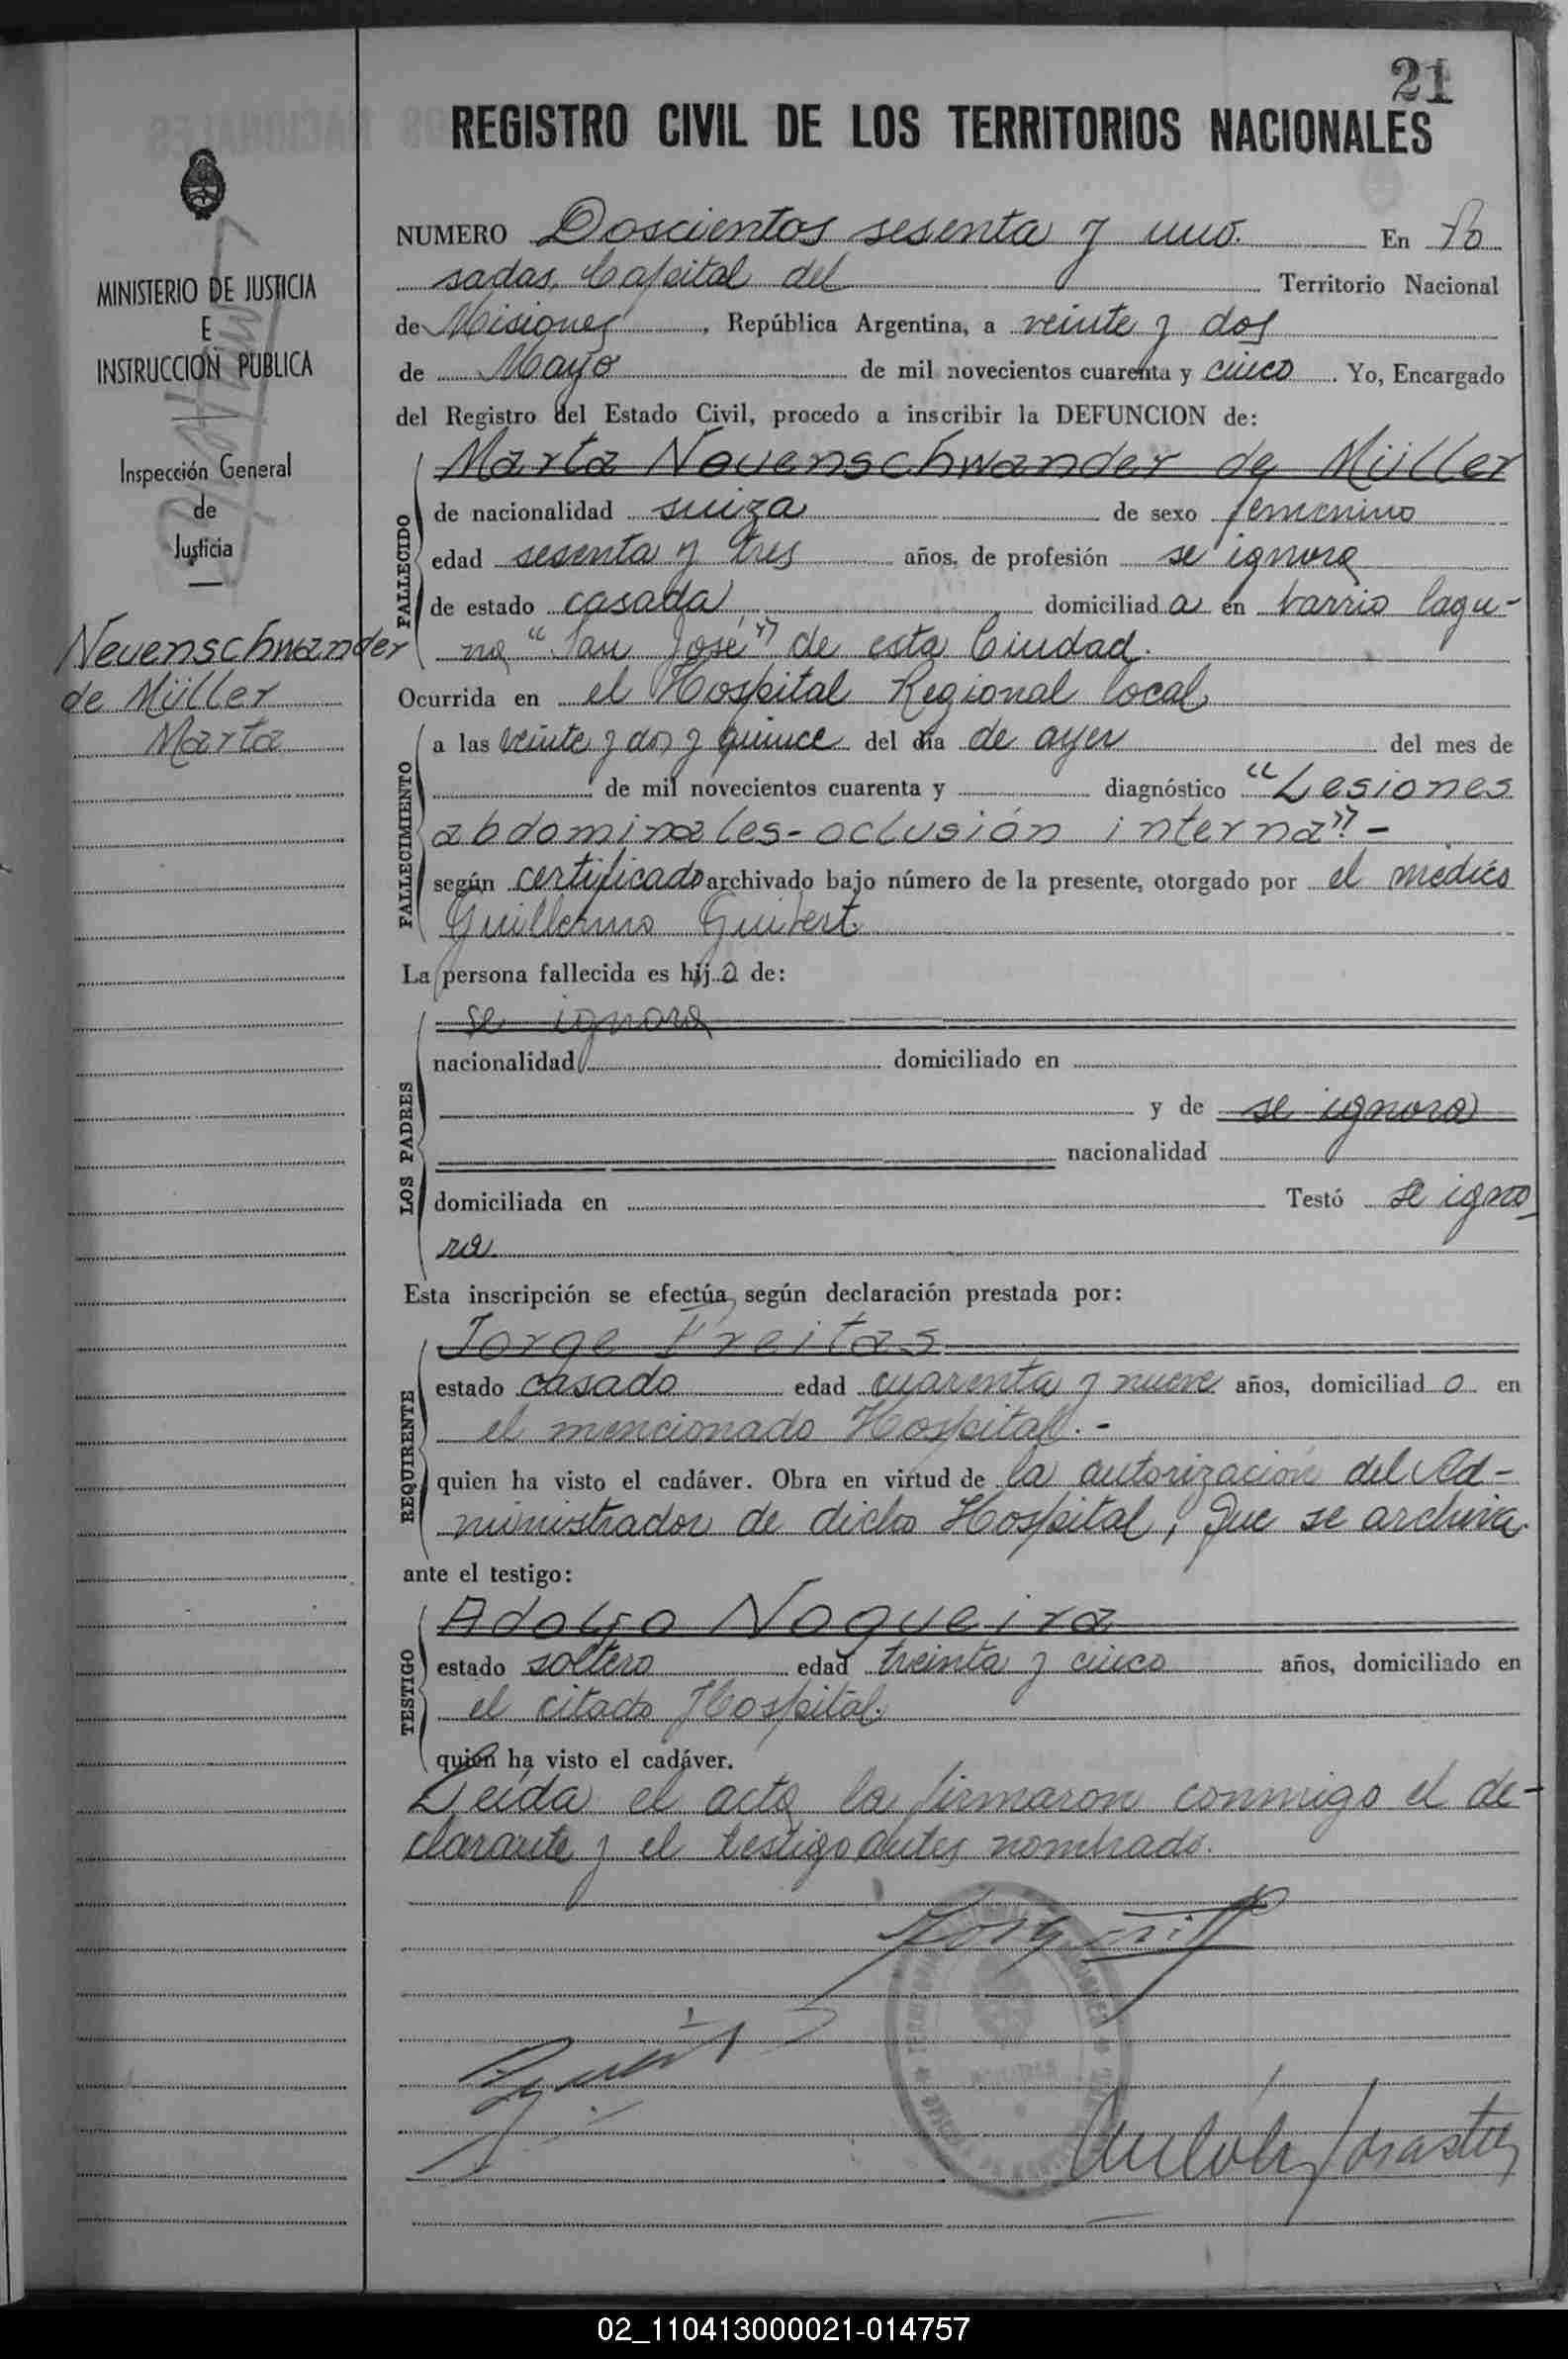 21
REGISTRO CIVIL DE LOS TERRITORIOS NACIONALES
MINISTERIO DE JUSTICIA
E
INSTRUCCION PUBLICA
Inspección General
de
Justicia
Neuenschwander
de Müller
Marta
NUMERO Doscientos sesenta y uno. En Po
sadas, Capital del Territorio Nacional
de Misiones, República Argentina, a veinte y dos
de Mayo de mil novecientos cuarenta y cinco. Yo, Encargado
del Registro del Estado Civil, procedo a inscribir la DEFUNCION de:
FALLECIDO
Marta Neuenschwander de Müller
de nacionalidad suiza de sexo femenino
edad sesenta y tres años, de profesión se ignora
de estado casada, domiciliad a en barrio lagu-
na "San José" de esta Ciudad.
Ocurrida en el Hospital Regional local,
FALLECIMIENTO
a las veinte y dos y quince del día de ayer del mes de
de mil novecientos cuarenta y diagnóstico "Lesiones
abdominales-oclusión interna".-
según certificado archivado bajo número de la presente, otorgado por el médico
Guillermo Guibert.
La persona fallecida es hij a de:
LOS PADRES
se ignora
nacionalidad domiciliado en
y de se ignora
nacionalidad
domiciliada en Testó se igno-
ra.
Esta inscripción se efectúa, según declaración prestada por:
REQUIRENTE
Jorge Freitas
estado casado edad cuarenta y nueve años, domiciliad o en
el mencionado Hospital.-
quien ha visto el cadáver. Obra en virtud de la autorización del Ad-
ministrador de dicho Hospital, que se archiva.
ante el testigo:
TESTIGO
Adolfo Nogueira
estado soltero edad treinta y cinco años, domiciliado en
el citado Hospital.
quien ha visto el cadáver.
Leída el acta la firmaron conmigo el de-
clarante y el testigo antes nombrado.
02_110413000021-014757